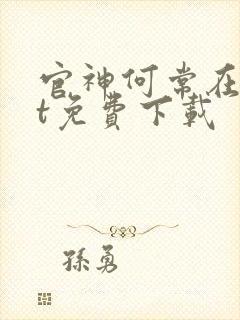 官神何常在
t免費下載
孫勇